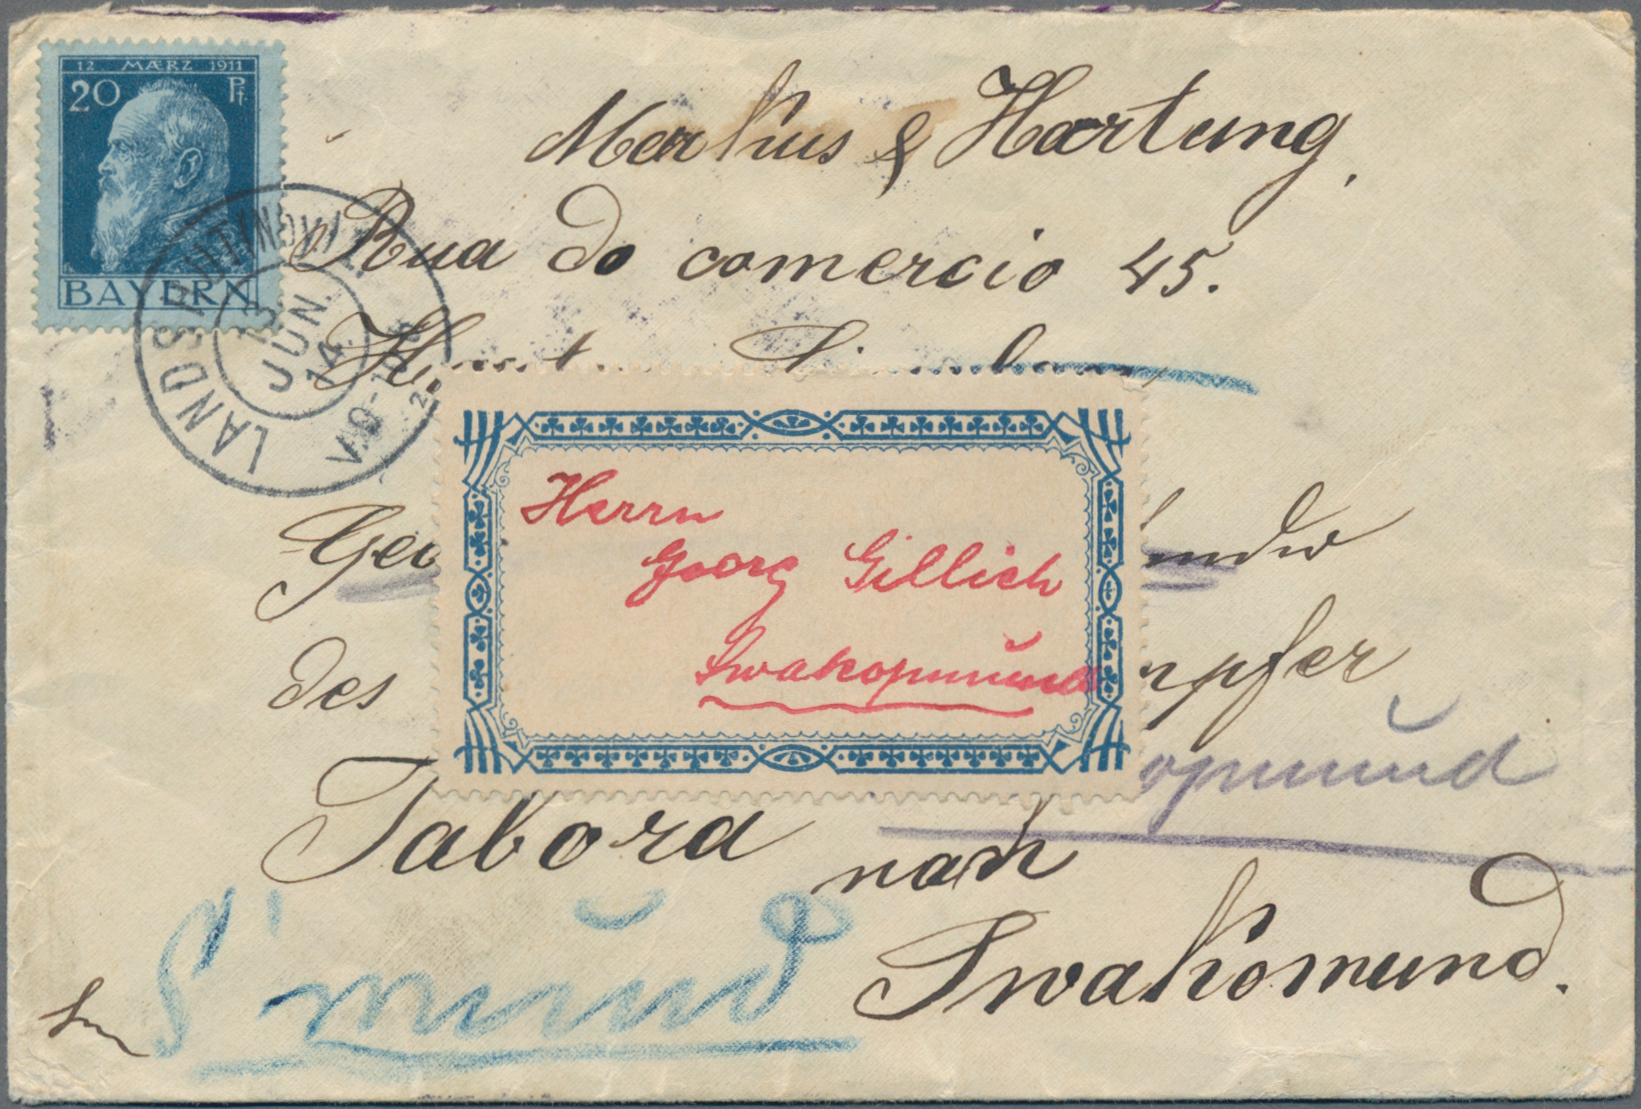 12 MÆRZ 1911
20 Pf.
BAYERN
LANDSHUT
13
JUN.
14.
Merkus & Hartung,
Rua do comercio 45.
Herrn
Georg Gillich
Swakopmund
des
npfer
opmund
Tabora nach
Swakomund.
S'mund